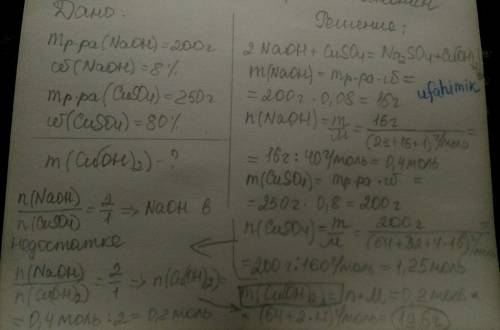 Дано:
mр-ра(NaOH)=200г
ω(NaOH)=8%
mр-ра(CuSO4)=250г
ω(CuSO4)=80%
m(Cu(OH)2)-?
n(NaOH)/n(CuSO4)=2/1=>NaOH в
недостатке
n(NaOH)/n(Cu(OH)2)=2/1=>n(Cu(OH)2)=
=0,4моль:2=0,2моль
Решение:
2NaOH+CuSO4=Na2SO4+Cu(OH)2
m(NaOH)=mр-ра·ω=
=200г·0,08=16г
ufahimik
n(NaOH)=m/M=16г/(23+16+1)г/моль=
=16г:40г/моль=0,4моль
m(CuSO4)=mр-ра·ω=
=250г·0,8=200г
n(CuSO4)=m/M=200г/(64+32+4·16)г/моль=
=200г:160г/моль=1,25моль
m(Cu(OH)2)=n·M=0,2моль·